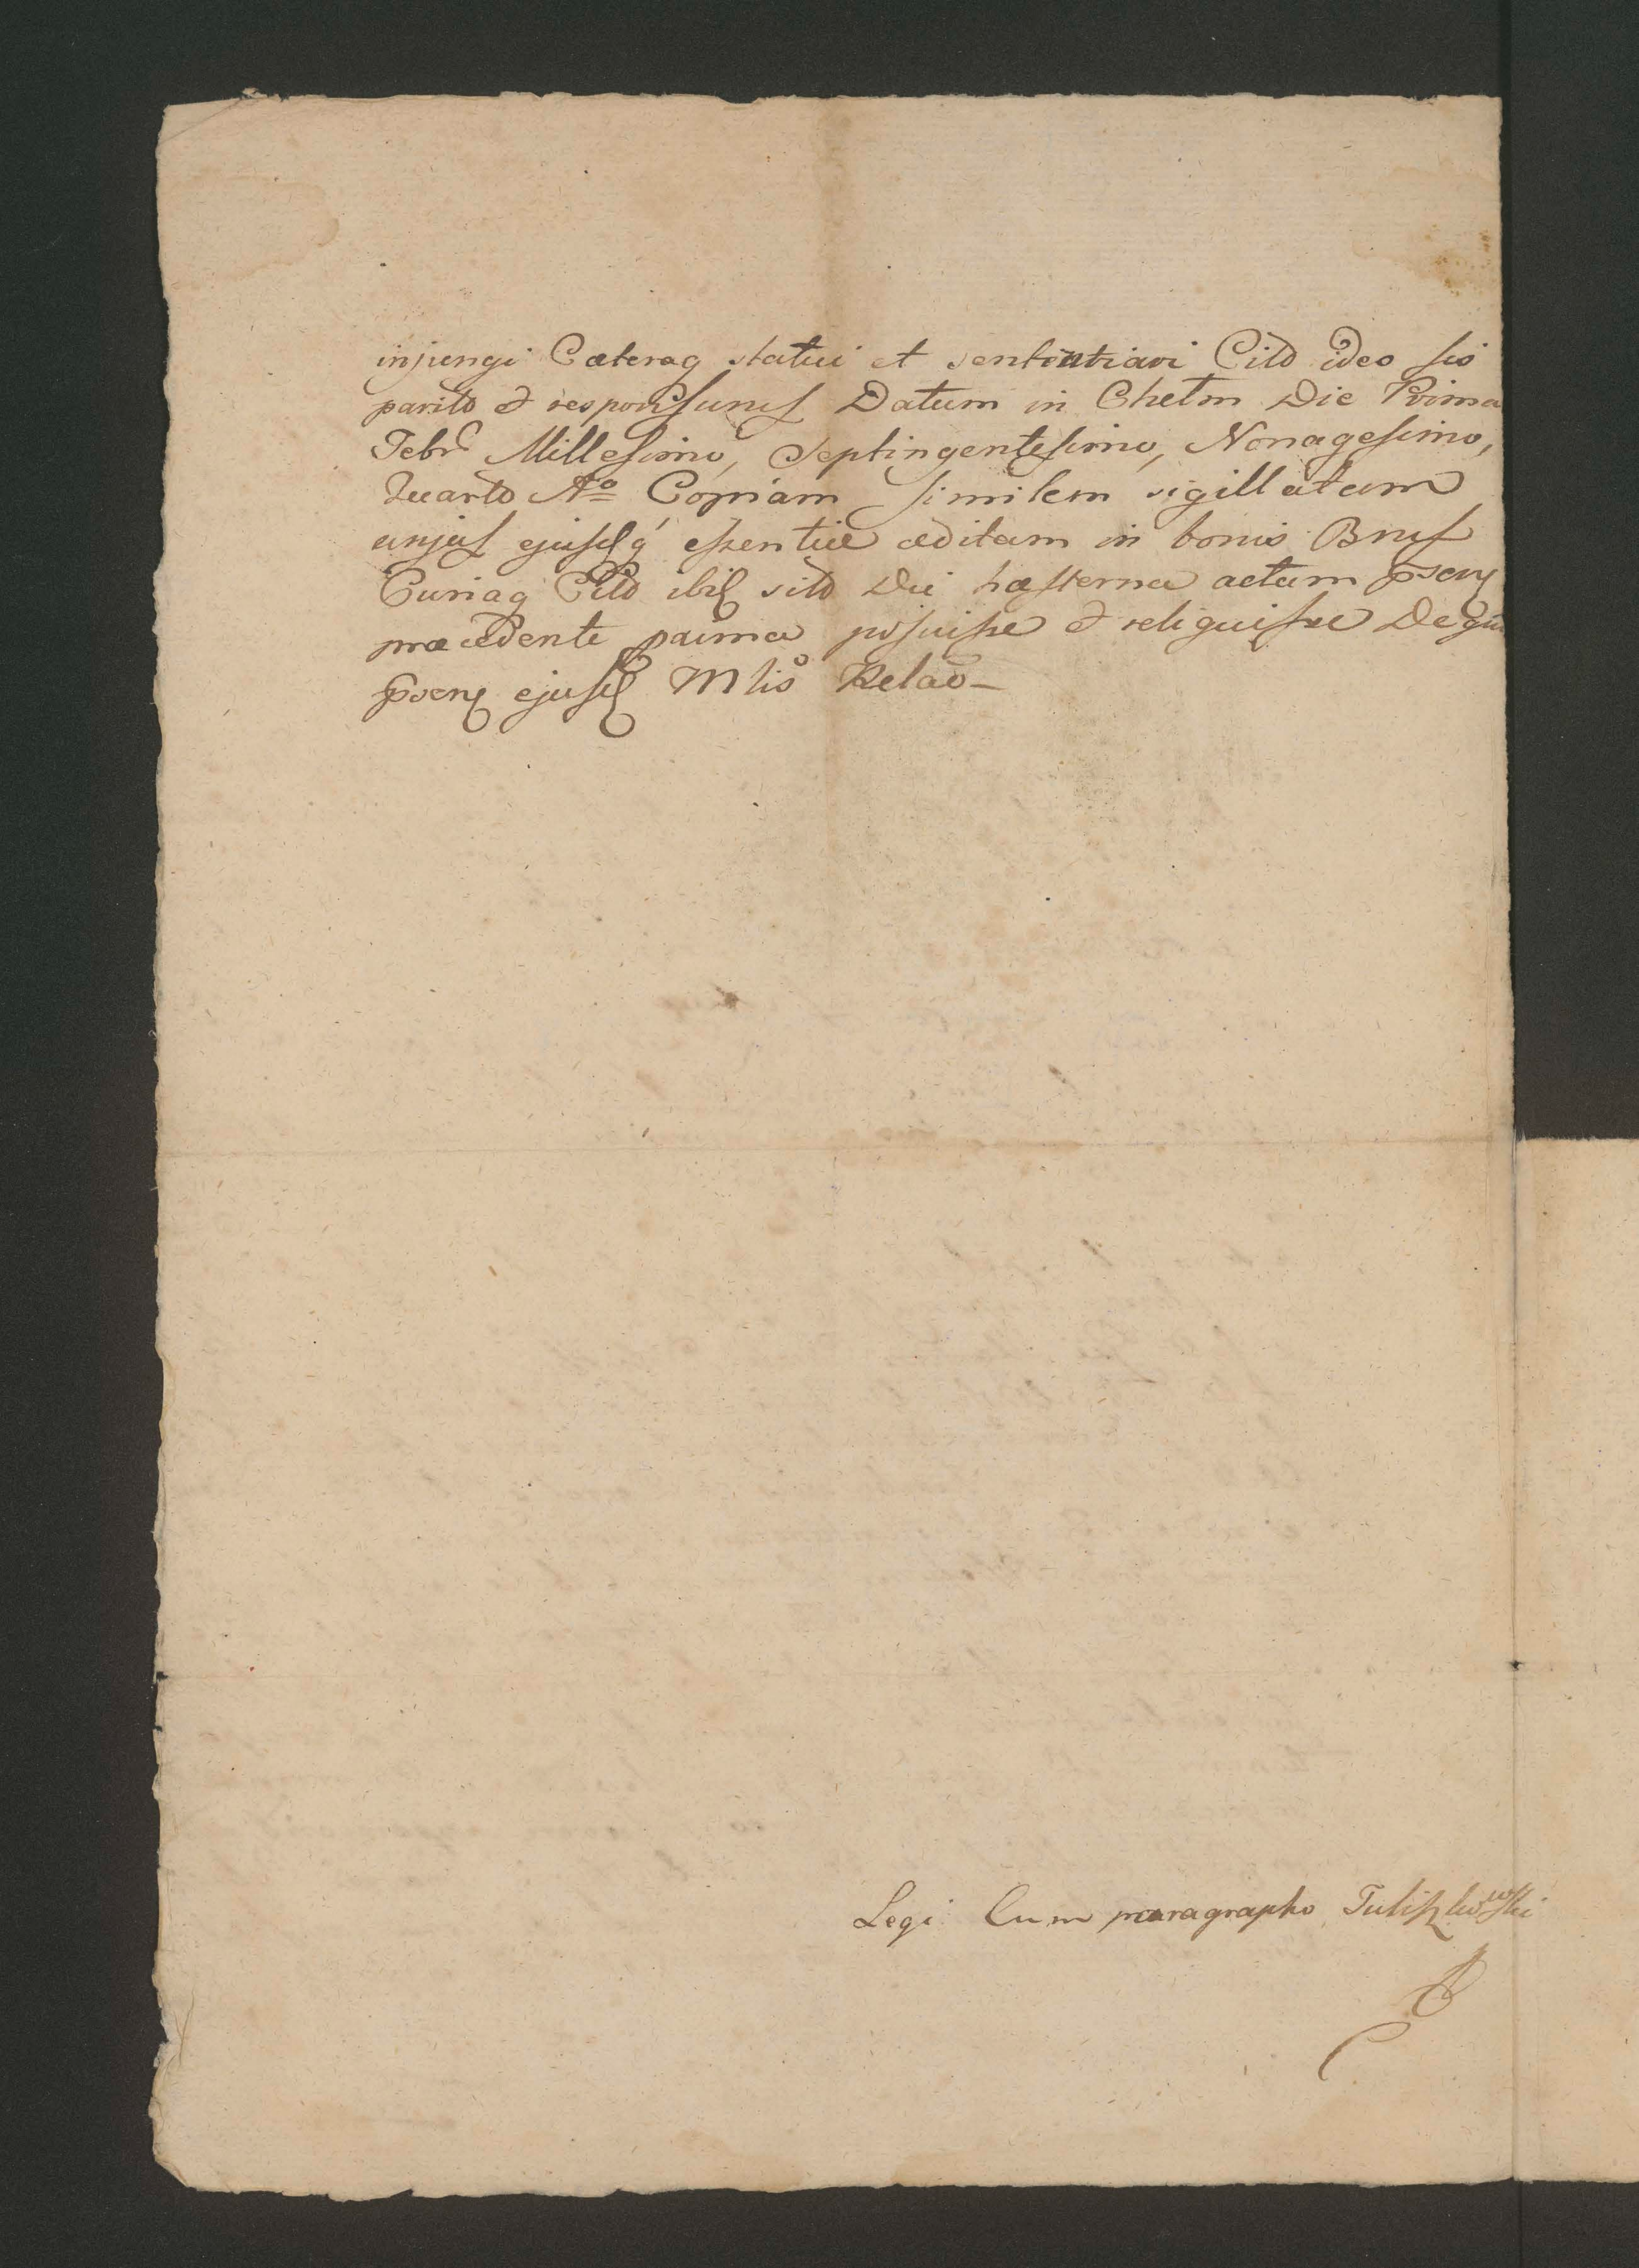 injungi Cæteraq statui et sententiari Citd ideo sis
paritd & responsurus Datum in Chełm Die Prima
Febr Millesimo, Septingentesimo, Nonagesimo,
Quarto Aº Copiam similem sigillatam
unjus ejusdq essentiæ æditam in bonis
Curiaq Citd ibid sitd Die hæsterna actum
præcedente proxima posuisse & reliquisse De
ejusd Mlis Relao
Legi Cum paragrapho Tuliszkowski